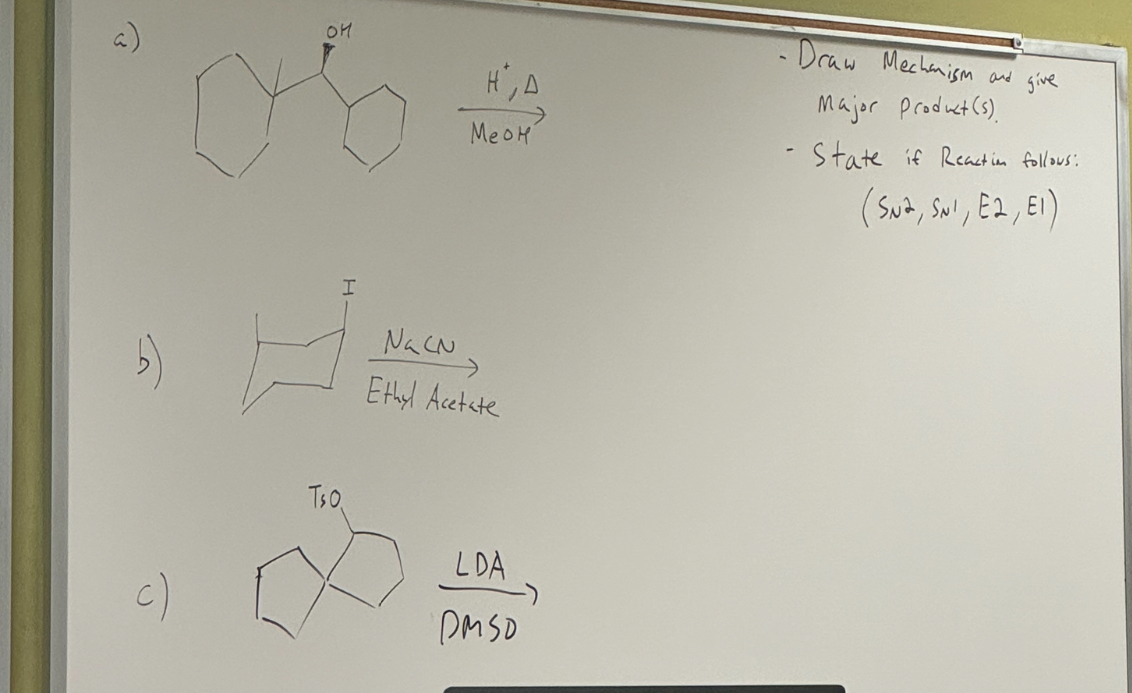 a)
OH
H⁺, Δ
MeOH
- Draw Mechanism and give
Major Product(s).
- State if Reaction follows:
(SN2, SN1, E2, E1)
b)
I
NaCN
Ethyl Acetate
c)
TsO
LDA
DMSO